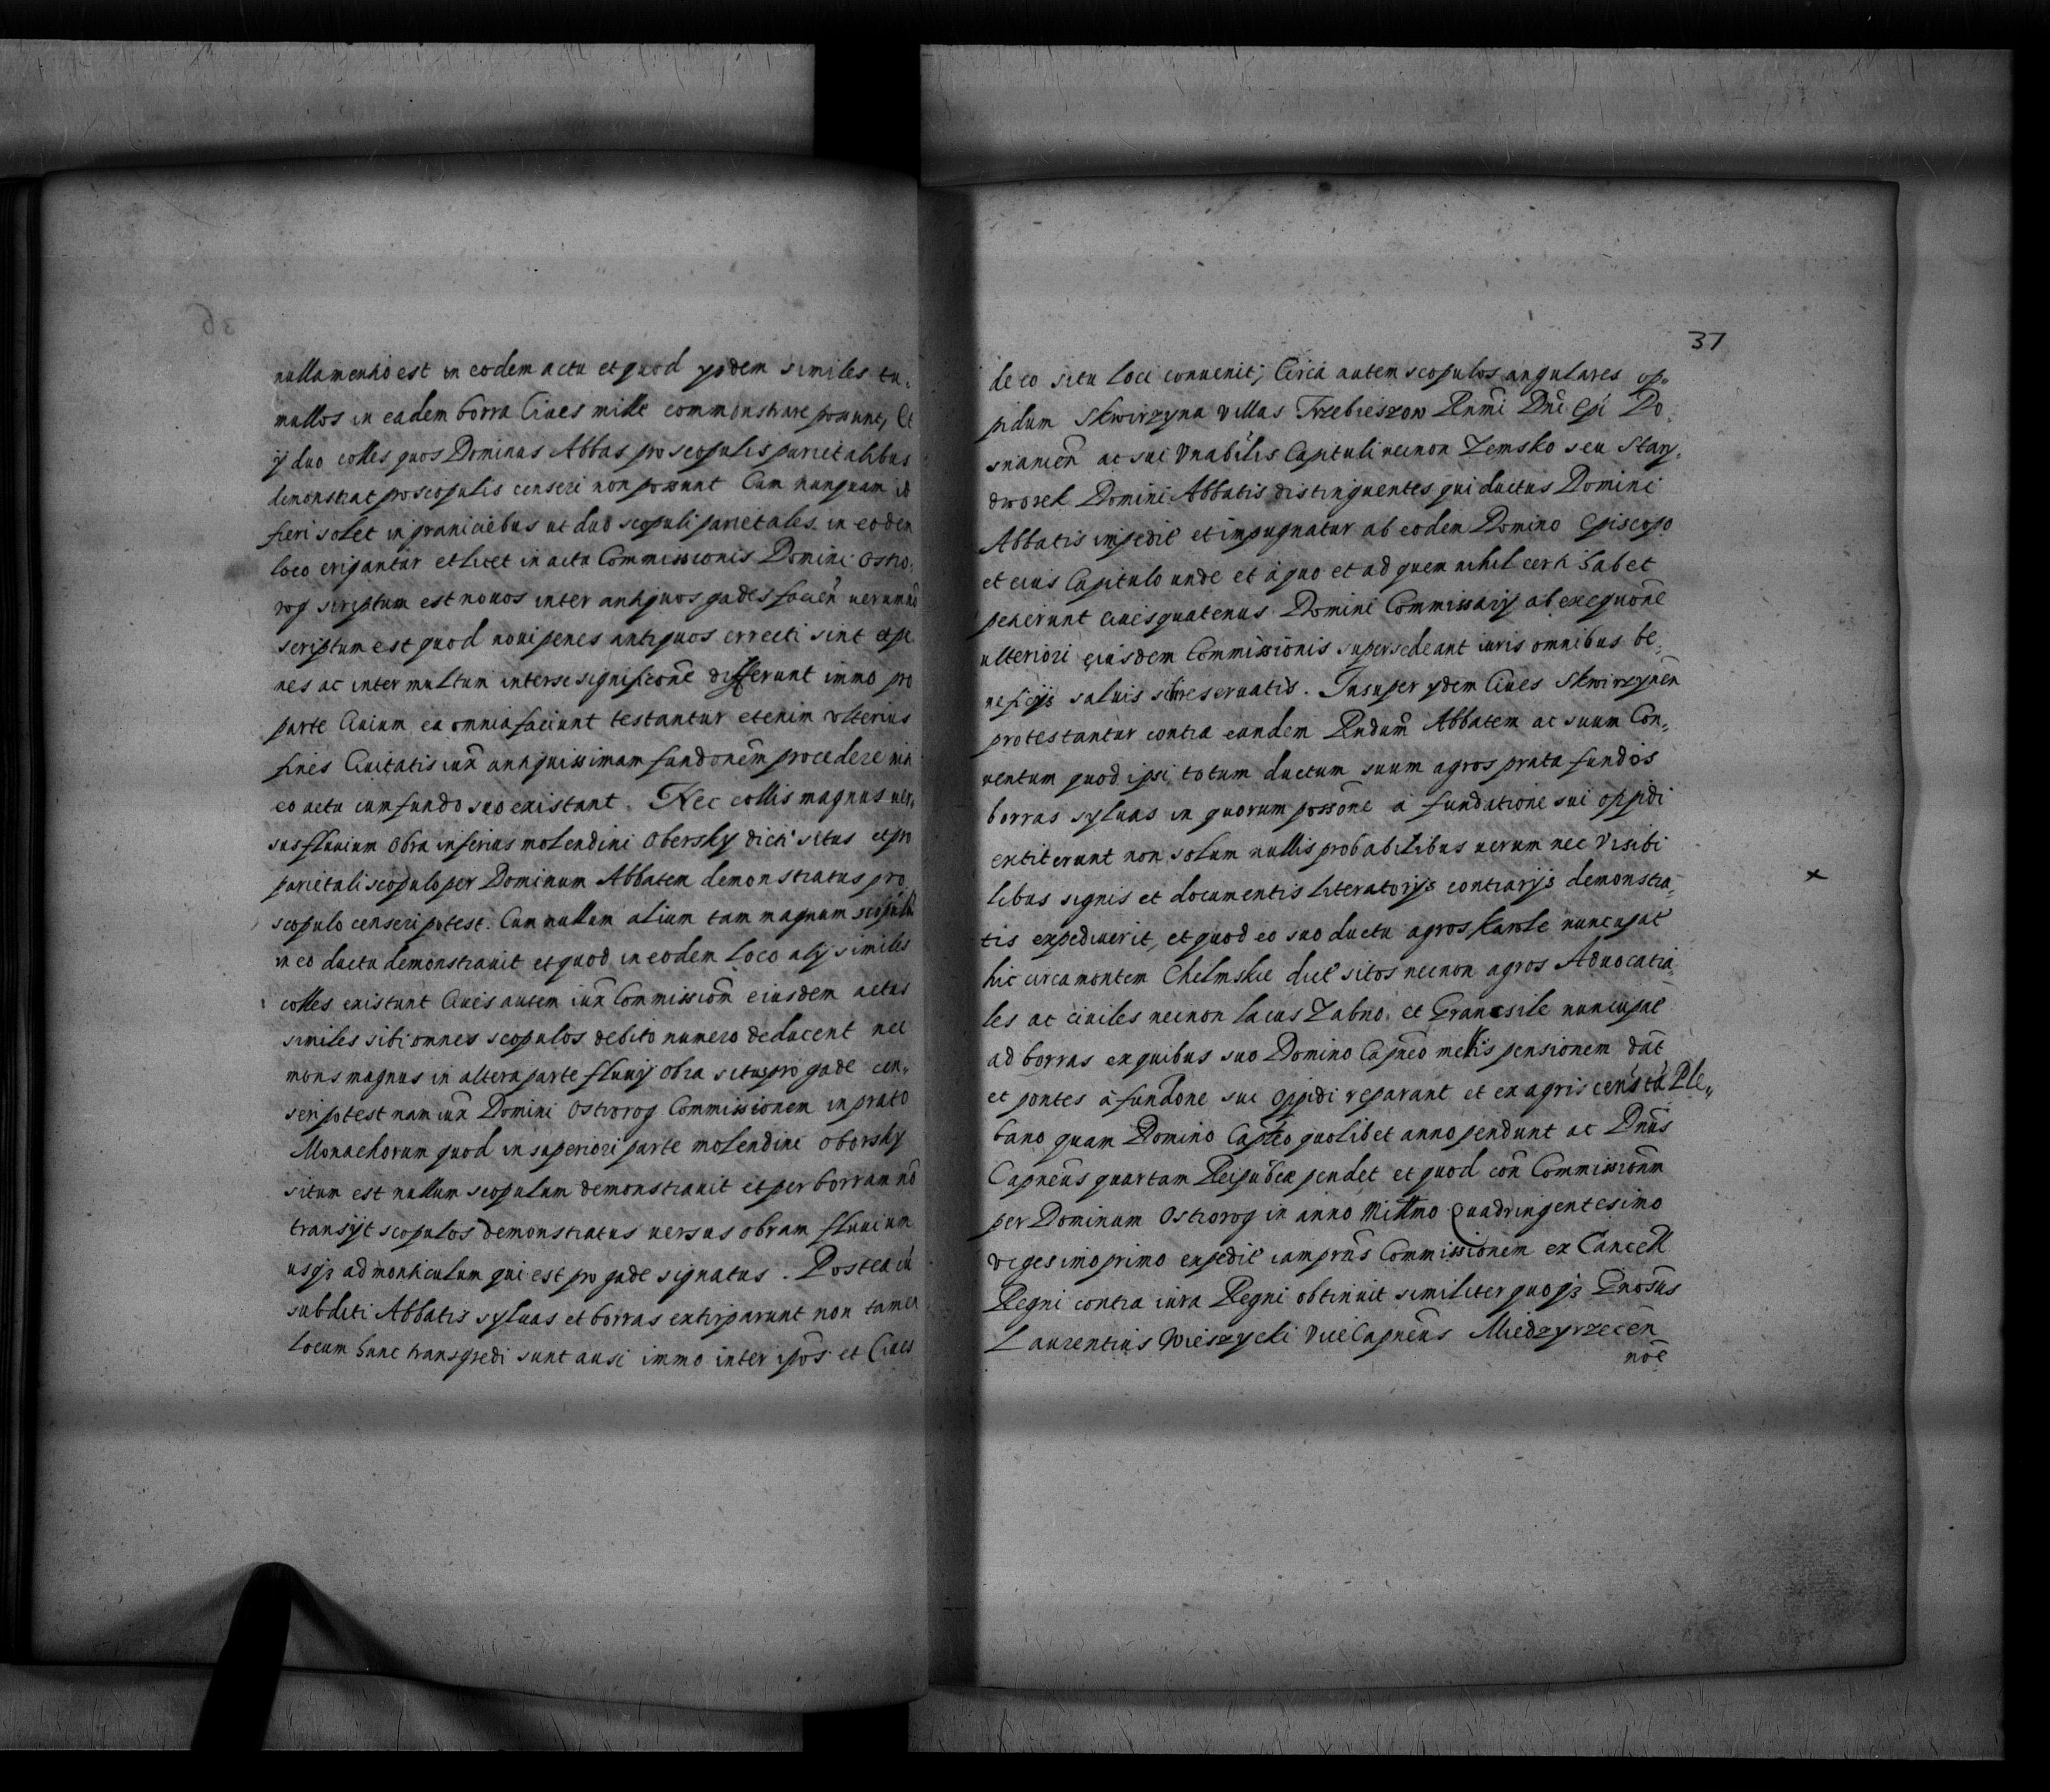 nulla mentio est in eodem actu et quod ydem similes tu,
mullos in eadem borra Ciues mille commonstrare possunt, Et
ij duo colles quos Dominus Abbas pro scopulis parietalibus
demonstrat pro scopulis censeri non possunt Cum nunquam id
fieri solet in graniciebus ut duo scopuli parietales in eodem
loco erigantur et licet in actu Commissionis Domini Ostro,
rog scriptum est nouos inter antiquos gades facien̄
scriptum est quod noui penes antiquos errecti sint et pe
nes ac inter multum inter se significone differunt immo pro
parte Ciuium ea omnia faciunt testantur etenim vlterius
fines Ciuitatis iux̄ antiquissimam fundonem procedere
eo actu cum fundo suo existant. Nec collis magnus uer,
sus fluuium Obra inferius molendini Obersky dicti situs et pro
parietali scopulo per Dominum Abbatem demonstratus pro
scopulo censeri potest. Cum nullum alium tam magnum scopulū
in eo ductu demonstrauit et quod in eodem loco alij similes
colles existunt Ciues autem iux̄ Commissiom̄ eiusdem actus
similes sibi omnes scopulos debito numero deducent nec
mons magnus in altera parte fluuij Obra situs pro gade cen,
seri potest nam iux̄ Domini Ostrorog Commissionem in prato
Monachorum quod in superiori parte molendini Oborsky
situm est nullum scopulum demonstrauit et per borram nō
transijt scopulos demonstratus uersus obram fluuium
usq3 ad monticulum qui est pro gade signatus. Postea cū
subditi Abbatis syluas et borras extirparunt non tamen
locum hunc transgredi sunt ausi immo inter ipos̄ et Ciues
37
de eo situ loci conuenit; Circa autem scopulos angulares op,
pidum Skwirzyna villas Trzebieszow Rn̄mi Dn̄i Ep̄i Po
snanien̄ ac sui Vnabilis Capituli necnon Zemsko seu Stary,
dworek Domini Abbatis distinguentes qui ductus Domini
Abbatis impedit̄ et impugnatur ab eodem Domino Episcopo
et eius Capitulo unde et a quo et ad quem nihil certi habet
petierunt Ciues quatenus Domini Commissarij ab exequōne
ulteriori eiusdem Commissionis supersedeant iuris omnibus be,
neficijs saluis reseruatis. Insuper ydem Ciues Skwirzynen̄
protestantur contra eundem Rn̄dum Abbatem ac suum Con,
uentum quod ipsi totum ductum suum agros prata fundos
borras syluas in quorum possōne à fundatione sui oppidi
extiterunt non solum nullis probabilibus uerum nec visibi
libus signis et documentis literatorijs contrarijs demonstra,
tis expediuerit, et quod eo suo ductu agros nuncupat̄
hic circa montem Chelmskie dict̄ sitos necnon agros Aduocatia,
les ac ciuiles necnon lacus Zabno, et nuncupat̄
ad borras ex quibus suo Domino Capn̄eo mellis pensionem dat̄
et pontes à fundōne sui oppidi reparant et ex agris Ple,,
bano quam Domino Capn̄eo quolibet anno pendunt ac Dn̄us
Capn̄eus quartam Reipub̄cæ pendet et quod Commissionm̄
per Dominum Ostrorog in anno Mill̄mo Quadringentesimo
vigesimo primo expedit̄ iam prn̄s Commissionem ex Cancell
Regni contra iura Regni obtinuit similiter quoq3 Gn̄osus
Laurentius Wieszycki ViceCapn̄eus Miedzyrzecen̄
nōe
x